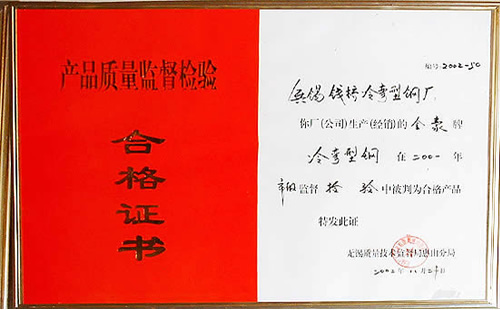 产品质量监督检验
合格证书
编号:2002-50
无锡钱桥冷弯型钢厂
你厂(公司)生产(经销)的金豪牌
冷弯型钢在2001年
监督检验中被判为合格产品
特发此证
无锡质量技术监督局惠山分局
2002年11月 日